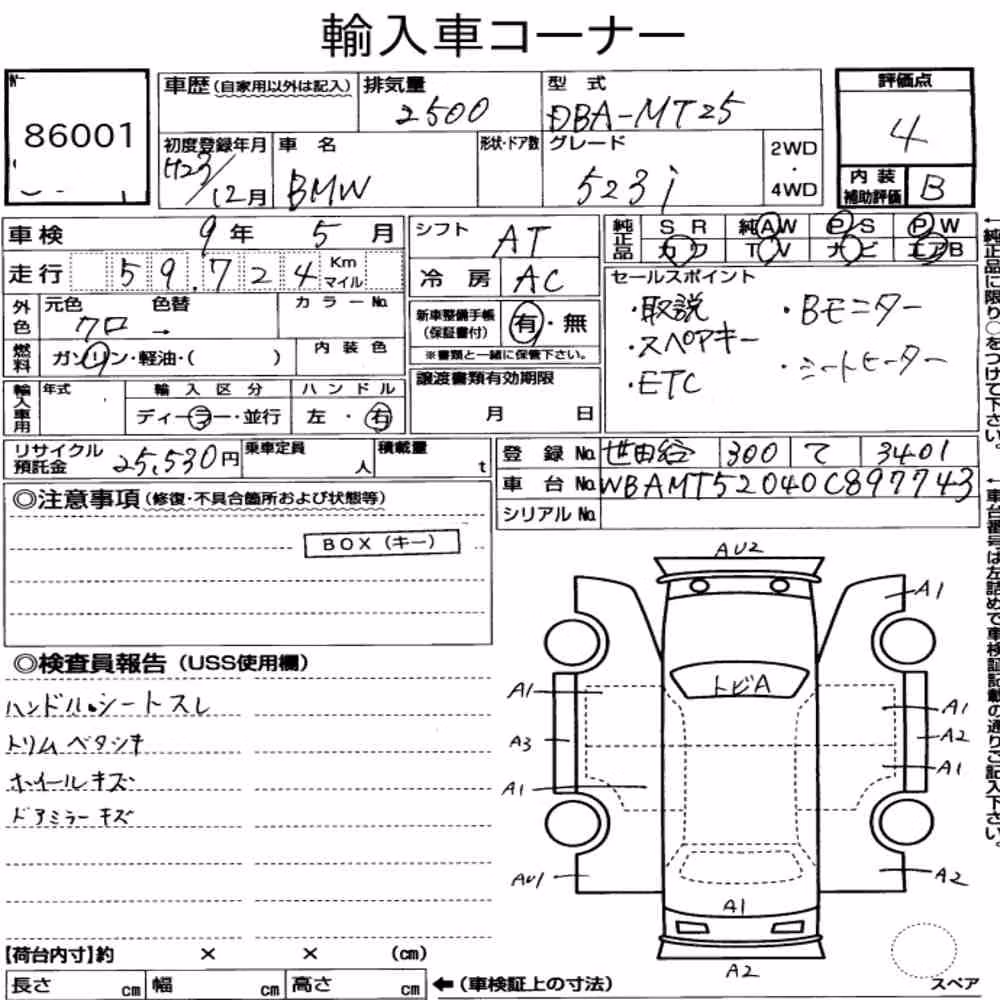 輸入車コーナー
86001
車歴 (自家用以外は記入)
排気量
2500
型式
DBA-MT25
評価点
4
初度登録年月
H23/12月
車名
BMW
形状・ドア数
グレード
523i
2WD
・
4WD
内装
補助評価
B
車検 9年 5月
シフト AT
純正品
SR 純AW PS PW
カワ TV ナビ エアB
走行 59,724 Km
マイル
冷房 AC
セールスポイント
・取説 ・Bモニター
・スペアキー
・シートヒーター
・ETC
外色
元色 色替
クロ →
カラーNo.
新車整備手帳
(保証書付)
有・無
※書類と一緒に保管下さい。
燃料
ガソリン・軽油・( )
内装色
譲渡書類有効期限
月 日
輸入車用
年式
輸入区分
ディーラー・並行
ハンドル
左・右
リサイクル
預託金
25,530円
乗車定員
人
積載量
t
登録No. 世田谷 300 て 3401
車台No. WBAMT52040C897743
シリアルNo.
◎注意事項 (修復・不具合箇所および状態等)
BOX(キー)
◎検査員報告 (USS使用欄)
ハンドル・シートスレ
トリムベタツキ
ホイールキズ
ドアミラーキズ
AU2
A1
トビA
A1
A1
A3
A2
A1
A1
AU1
A2
A1
A2
スペア
【荷台内寸】約 × × (cm)
長さ cm 幅 cm 高さ cm
←(車検証上の寸法)
←純正品に限り○をつけて下さい。
←車台番号は左詰めで車検証記載の通りご記入下さい。